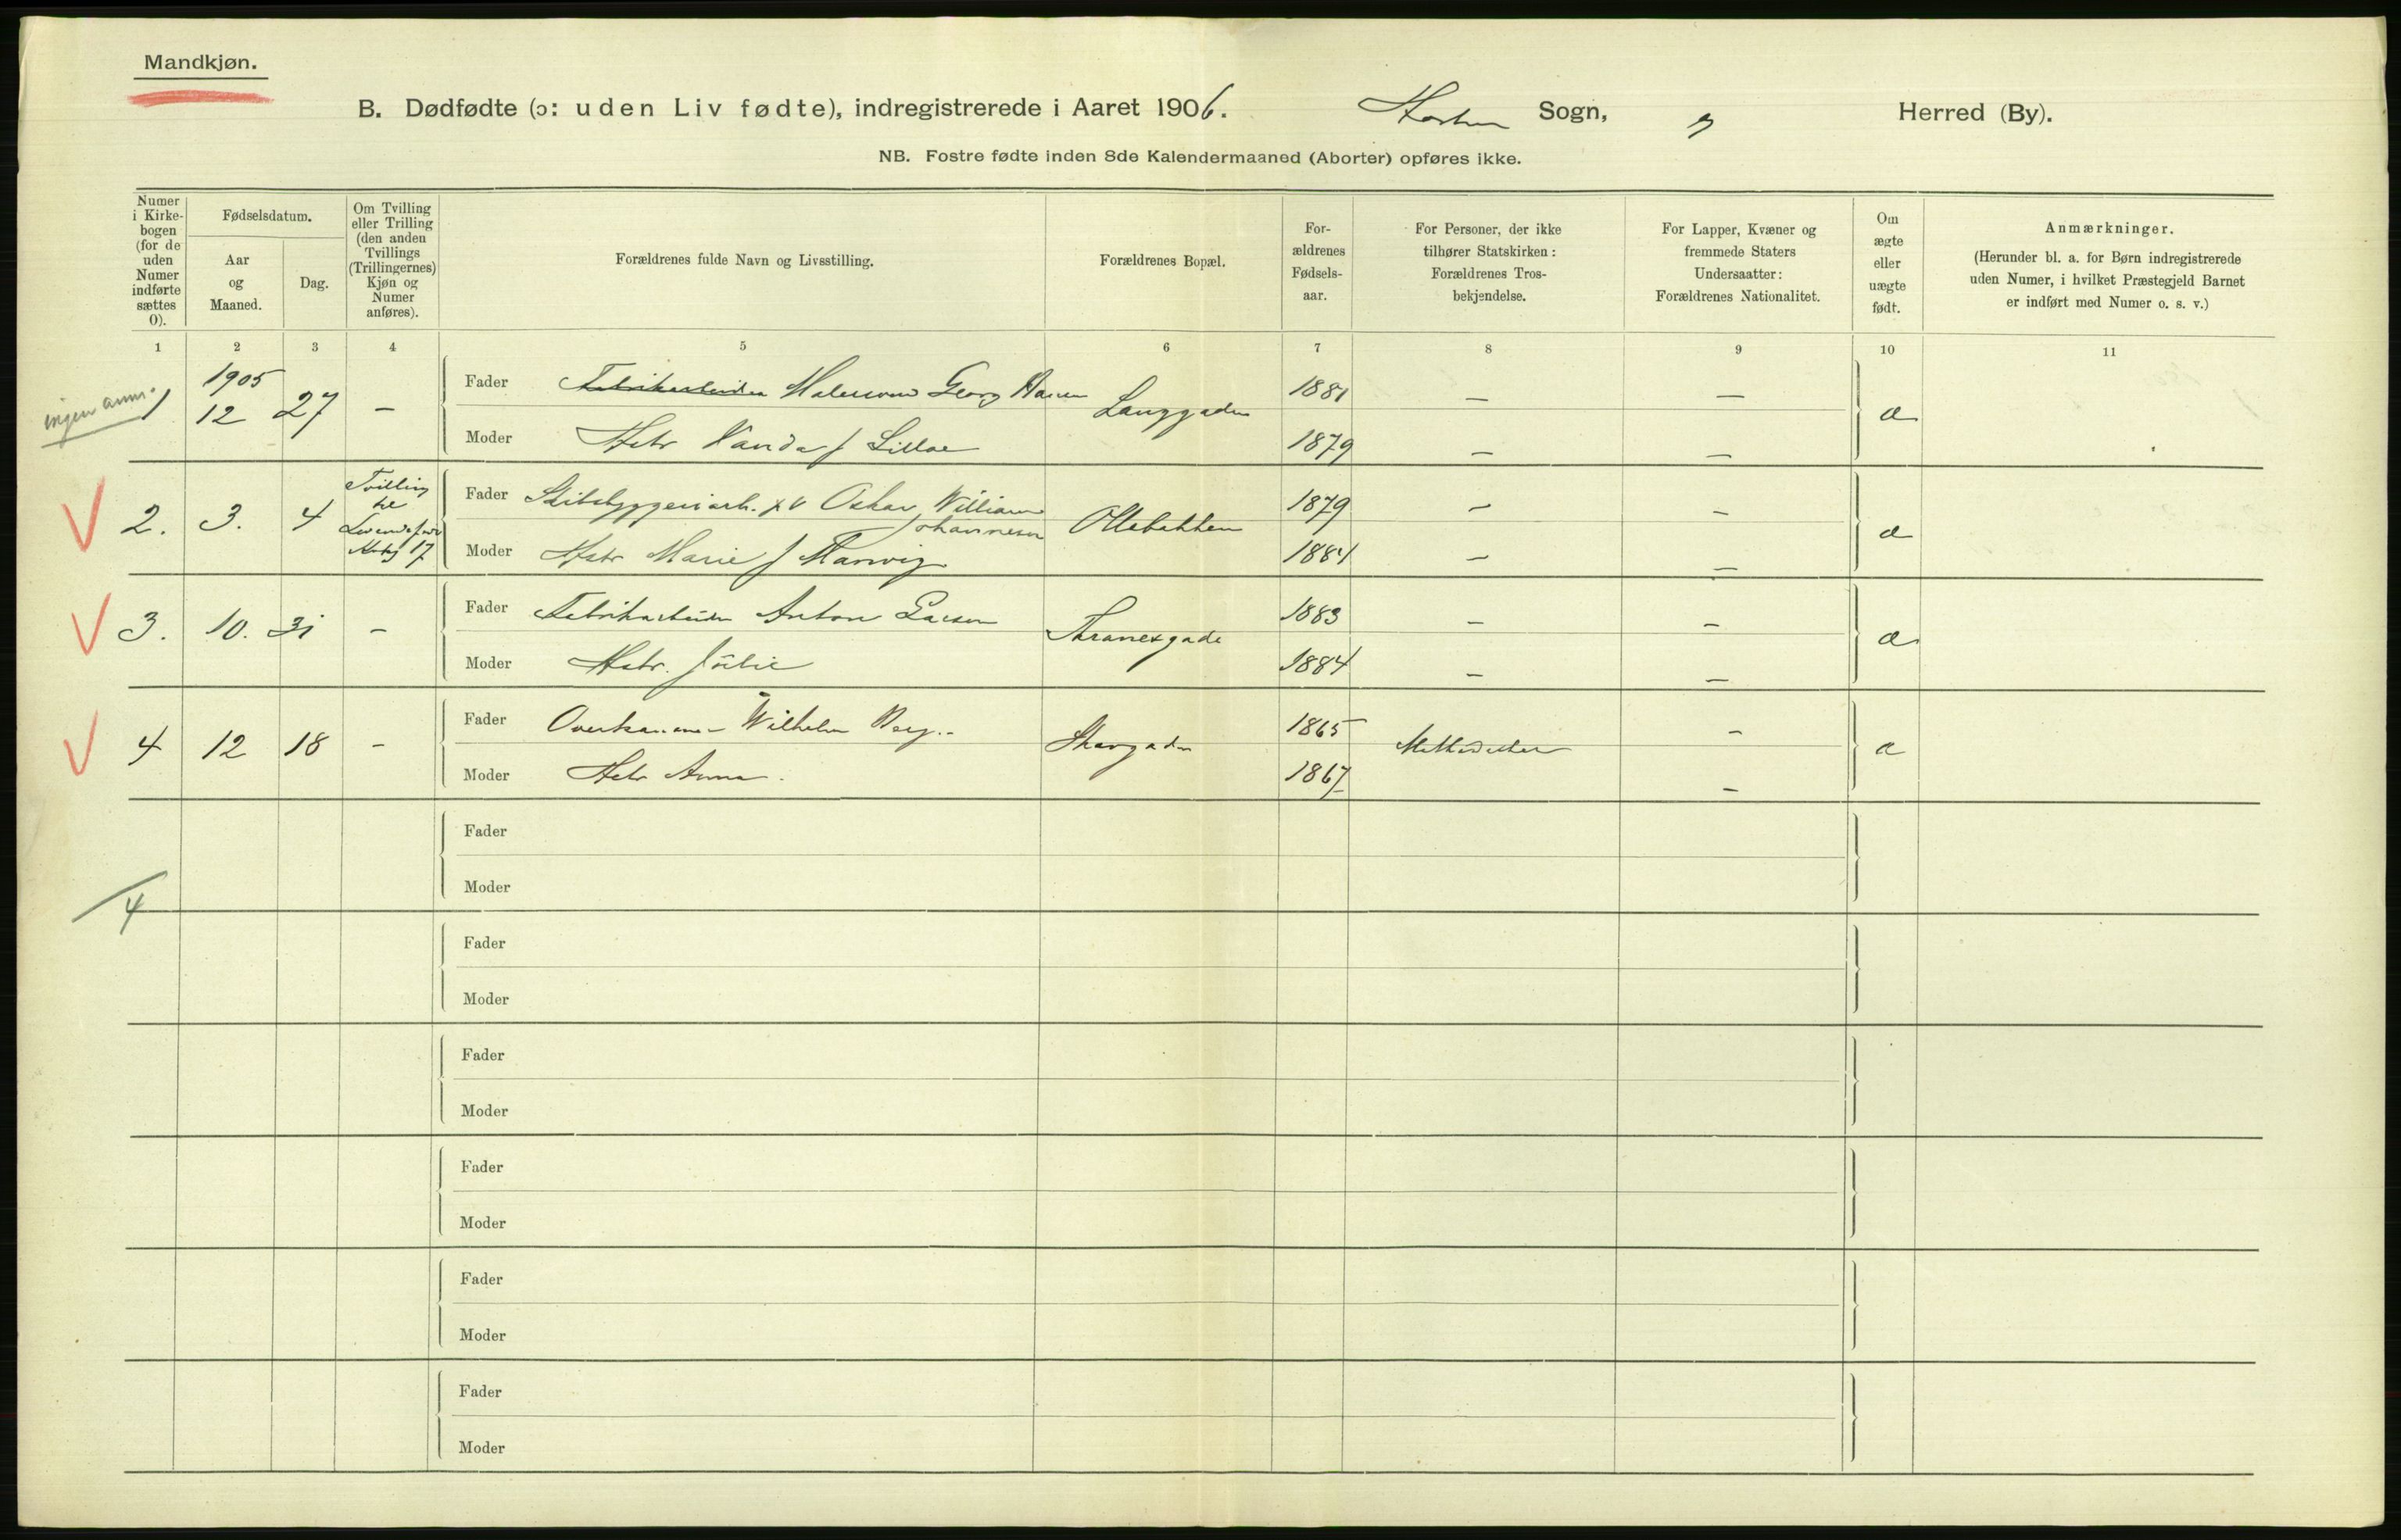 Mandkjøn.
B. Dødfødte (ɔ: uden Liv fødte), indregistrerede i Aaret 1906. Horten Sogn, Herred (By).
NB. Fostre fødte inden 8de Kalendermaaned (Aborter) opføres ikke.
Numer i Kirkebogen (for de uden Numer indførte sættes 0).
Fødselsdatum.
Aar og Maaned.
Dag.
Om Tvilling eller Trilling (den anden Tvillings (Trillingernes) Kjøn og Numer anføres).
Forældrenes fulde Navn og Livsstilling.
Forældrenes Bopæl.
Forældrenes Fødselsaar.
For Personer, der ikke tilhører Statskirken: Forældrenes Trosbekjendelse.
For Lapper, Kvæner og fremmede Staters Undersaatter: Forældrenes Nationalitet.
Om ægte eller uægte født.
Anmærkninger.
(Herunder bl. a. for Børn indregistrerede uden Numer, i hvilket Præstegjeld Barnet er indført med Numer o. s. v.)
1 2 3 4 5 6 7 8 9 10 11
ingen anm. 1 1905 12 27 – Fader Fabrikarbeider Malersvend Georg Langgaden 1881 – – æ
Moder Hstr Vanda f Lilloe 1879 – –
V 2. 3. 4 Tvilling til 17 Fader Skibsbyggeriarb. Oskar William Johannesen Ollebakken 1879 – – æ
Moder Hstr Marie f Marwig 1884 – –
V 3. 10. 31 – Fader Fabrikarbeider Anton Larsen Thranesgade 1883 – – æ
Moder Hstr. Julie 1884 – –
V 4 12 18 – Fader Wilhelm Berg. 1865 – æ
Moder Hstr Anna. 1867 –
Fader
Moder
4
Fader
Moder
Fader
Moder
Fader
Moder
Fader
Moder
Fader
Moder